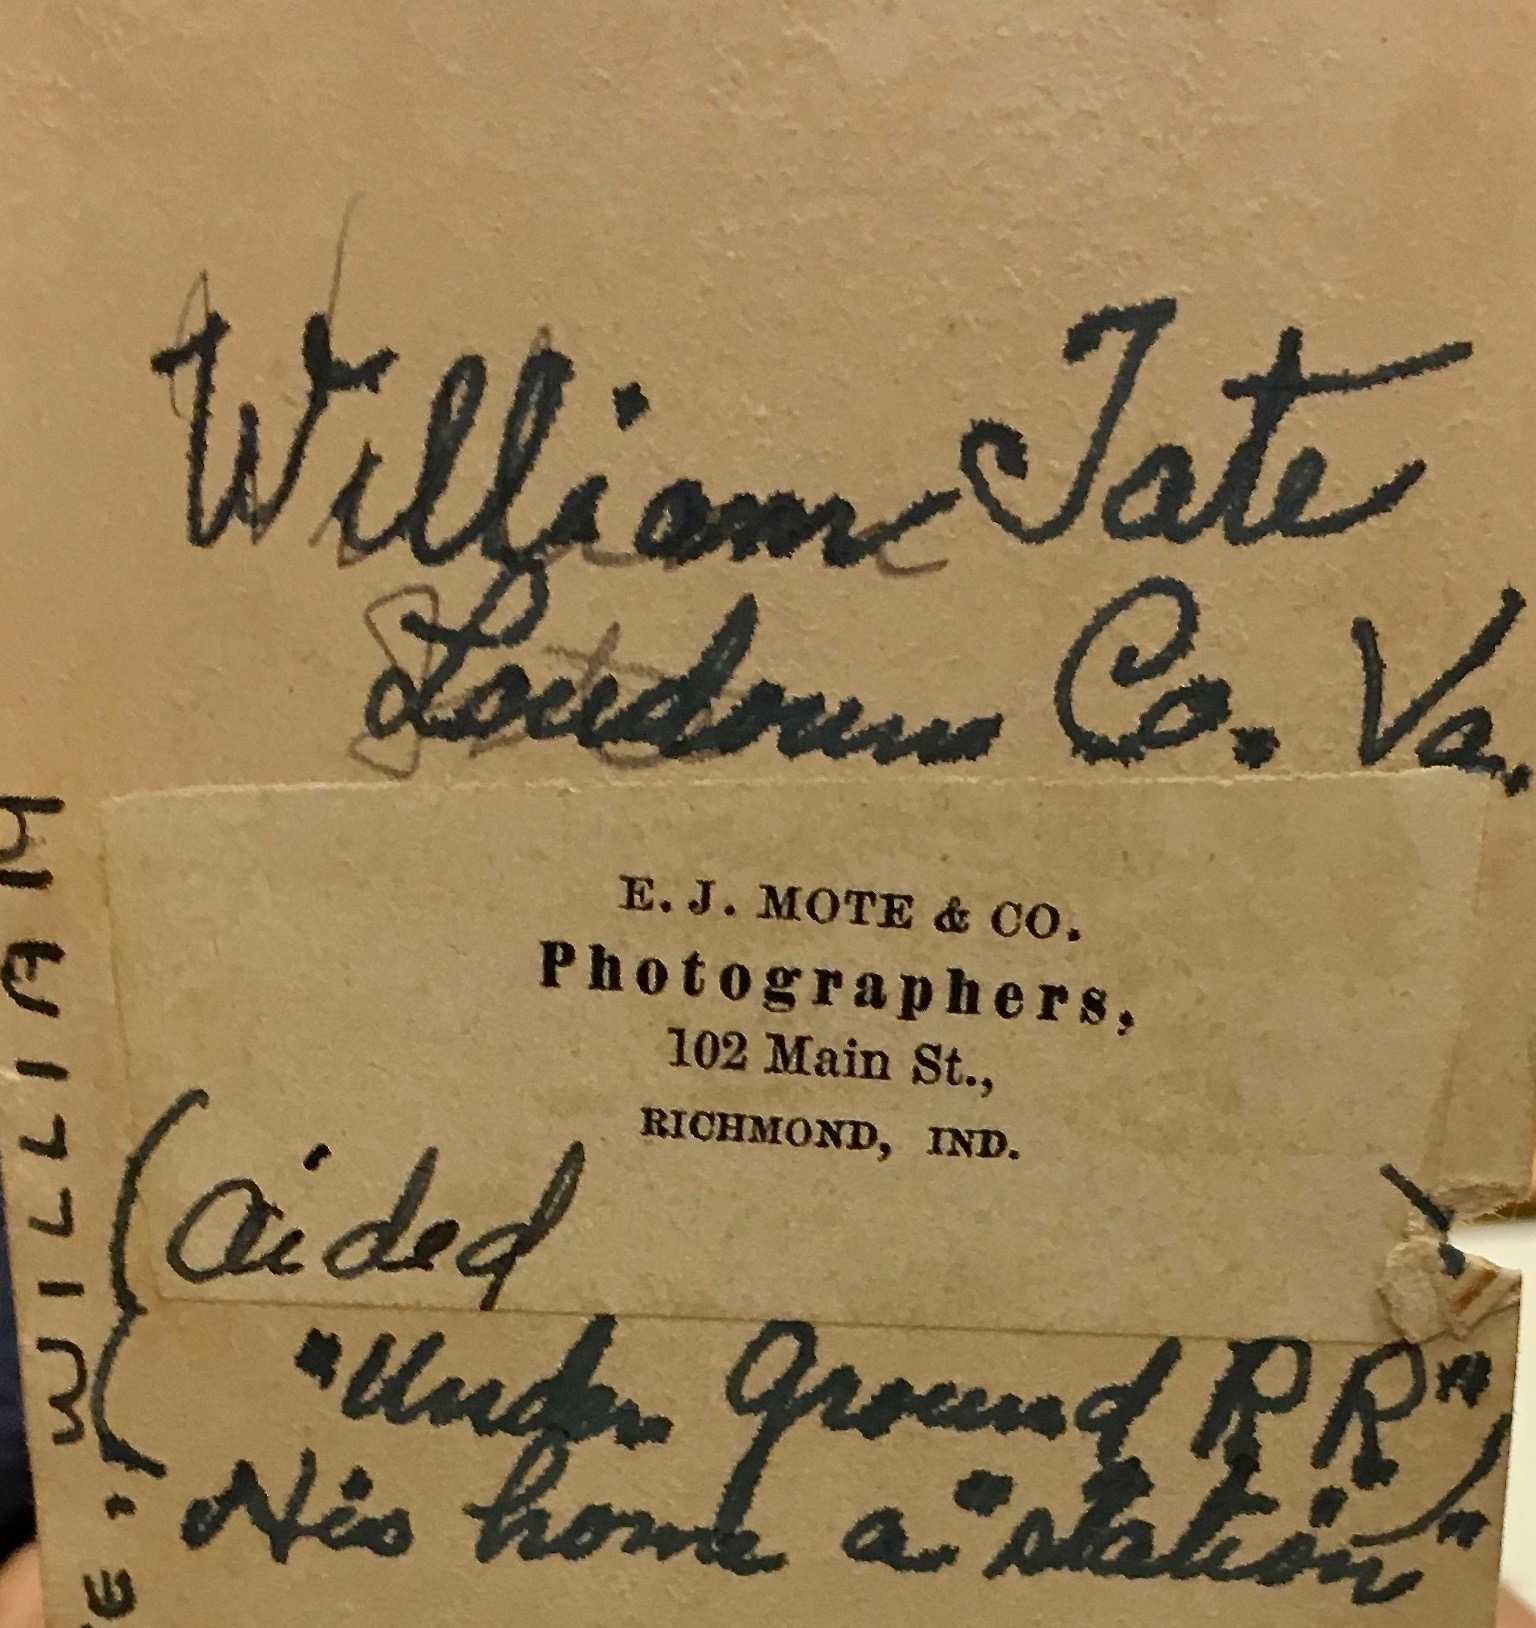 William Tate
Loudoun Co. Va.
E. J. MOTE & CO.
Photographers,
102 Main St.,
RICHMOND, IND.
(aided
"Under Ground R R")
His home a "station"
WILLIAM